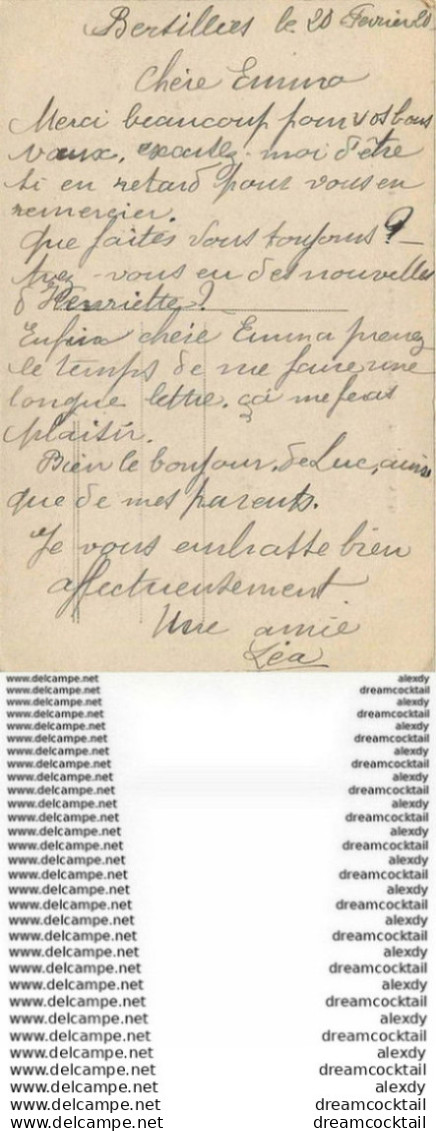 le 20 Fevrier 20
Chère Emma
Merci beaucoup pour vos bons
vœux, excusez-moi d'être
si en retard pour vous en
remercier.
Que faites vous toujours ?
Avez-vous eu des nouvelles
d'Henriette?
Enfin chère Emma prenez
le temps de me faire une
longue lettre. ça me feras
plaisir.
Bien le bonjour de Luc, ainsi
que de mes parents.
Je vous embrasse bien
affectueusement
Une amie
Léa
www.delcampe.net alexdy
www.delcampe.net dreamcocktail
www.delcampe.net alexdy
www.delcampe.net dreamcocktail
www.delcampe.net alexdy
www.delcampe.net dreamcocktail
www.delcampe.net alexdy
www.delcampe.net dreamcocktail
www.delcampe.net alexdy
www.delcampe.net dreamcocktail
www.delcampe.net alexdy
www.delcampe.net dreamcocktail
www.delcampe.net alexdy
www.delcampe.net dreamcocktail
www.delcampe.net alexdy
www.delcampe.net dreamcocktail
www.delcampe.net alexdy
www.delcampe.net dreamcocktail
www.delcampe.net alexdy
www.delcampe.net dreamcocktail
www.delcampe.net alexdy
www.delcampe.net dreamcocktail
www.delcampe.net alexdy
www.delcampe.net dreamcocktail
www.delcampe.net alexdy
www.delcampe.net dreamcocktail
www.delcampe.net alexdy
www.delcampe.net dreamcocktail
www.delcampe.net alexdy
www.delcampe.net dreamcocktail
www.delcampe.net dreamcocktail